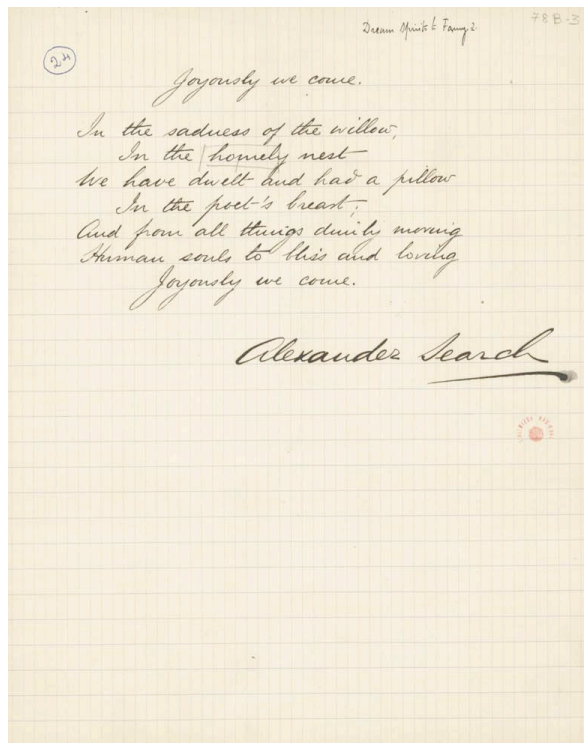 Dream Spirits to Fanny 2
78 B-3
24
Joyously we come.
In the sadness of the willow,
In the homely nest
We have dwelt and had a pillow
In the poet's breast;
And from all things dimly moving
Human souls to bliss and loving
Joyously we come.
Alexander Search